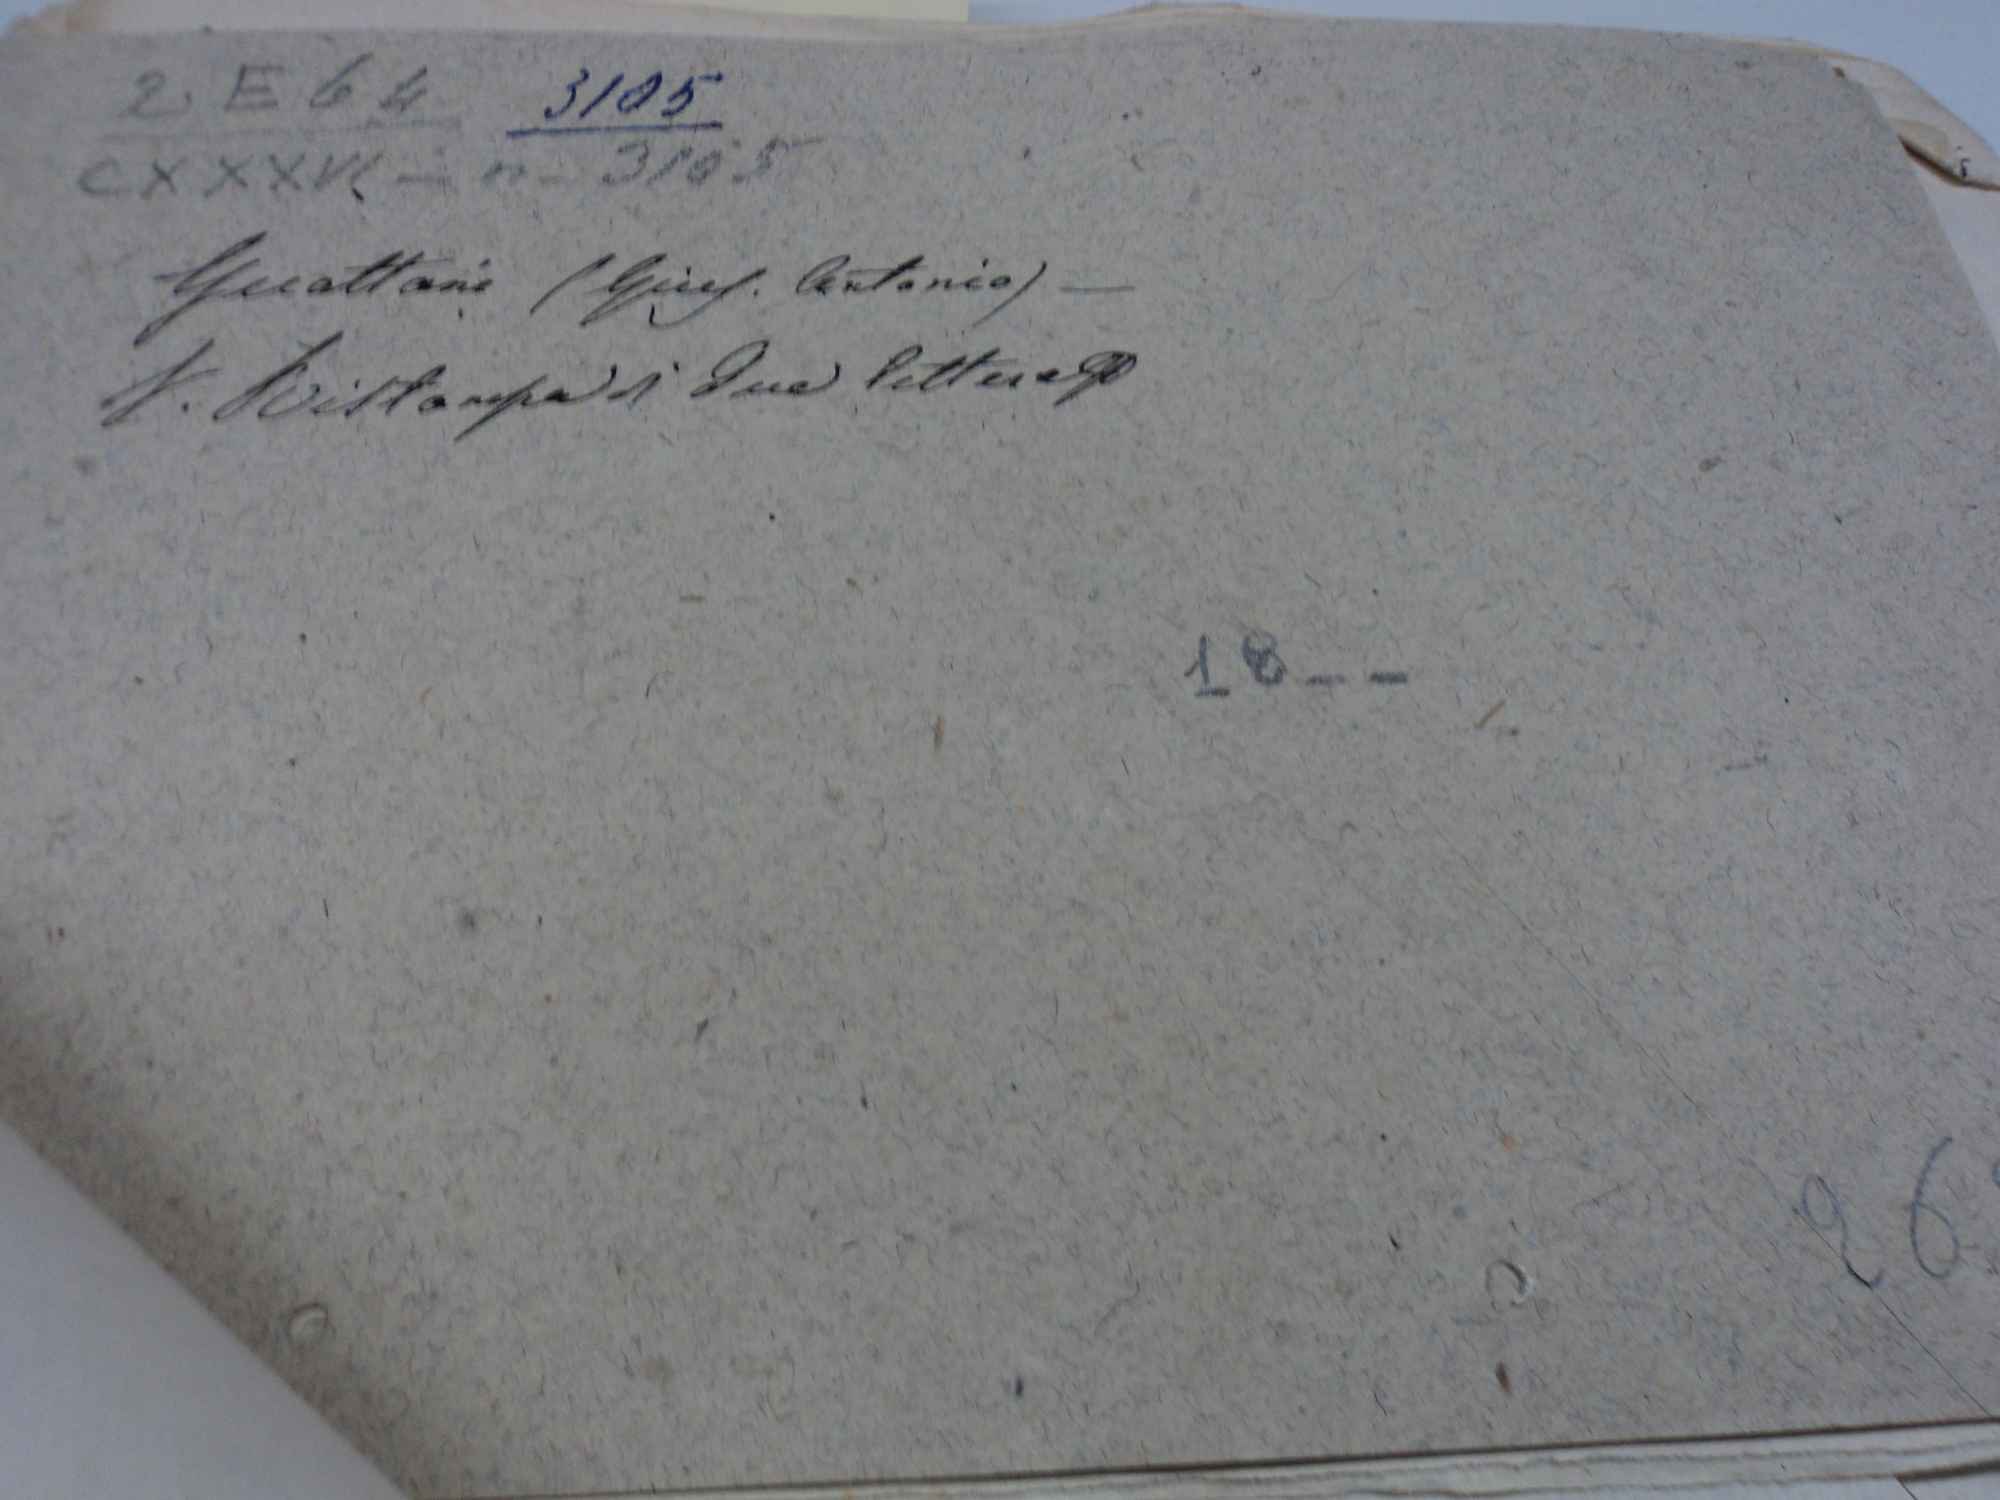 2 E 6 4 3105
CXXXVI — n - 3105
Guattani (Gius. Antonio) —
V. Ristampa di due lettere
18 — —
26